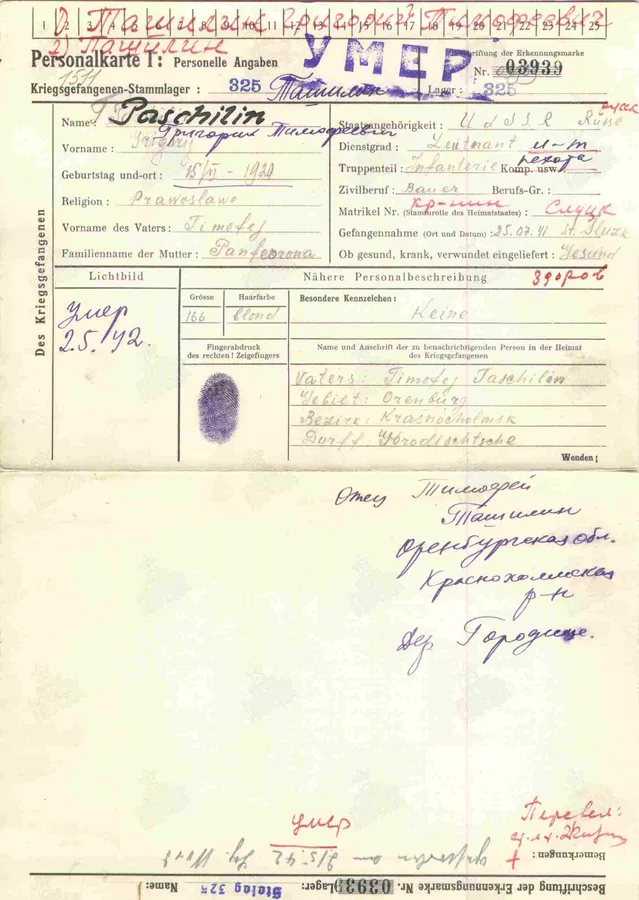 1) Ташилин Григорий Тимофеевич
1 2 3 4 5 6 7 8 9 10 11 12 13 14 15 16 17 18 19 20 21 22 23 24 25
2) Пашилин
УМЕР
Personalkarte I: Personelle Angaben
Beschriftung der Erkennungsmarke
Nr. 03939
1511
Kriegsgefangenen-Stammlager: 325 Ташилин Lager: 325
Des Kriegsgefangenen
Name: Paschilin
Григорий Тимофеевич
Vorname: Grogorj
Geburtstag und-ort: 15/II - 1920
Religion: Prawoslawe
Vorname des Vaters: Timofej
Familienname der Mutter: Panfeorowa
Staatsangehörigkeit: UdSSR Russe
русск
Dienstgrad: Leutnant л-т
Truppenteil: Infanterie Komp. usw.: пехота
Zivilberuf: Bauer Berufs-Gr.:
Matrikel Nr. (Stammrolle des Heimatstaates): кр-нин Слуцк
Gefangennahme (Ort und Datum): 25.07.41 St. Sluzk
Ob gesund, krank, verwundet eingeliefert: Gesund
здоров
Lichtbild
Умер
2.5.42.
Nähere Personalbeschreibung
Grösse
166
Haarfarbe
blond
Besondere Kennzeichen:
Keine
Fingerabdruck
des rechten! Zeigefingers
Name und Anschrift der zu benachrichtigenden Person in der Heimat
des Kriegsgefangenen
Vaters: Timofej Taschilin
Gebiet: Orenburg
Bezirk: Krasnocholmsk
Dorff. Gorodischtsche
Wenden!
Отец Тимофей
Ташилин
Оренбургская обл.
Краснохолмская
р-н
Дер. Городище.
Перевел:
умер
Bemerkungen: + Gestorben am 2/5.42
Beschriftung der Erkennungsmarke Nr. 03939 Lager: Stalag 325 Name: